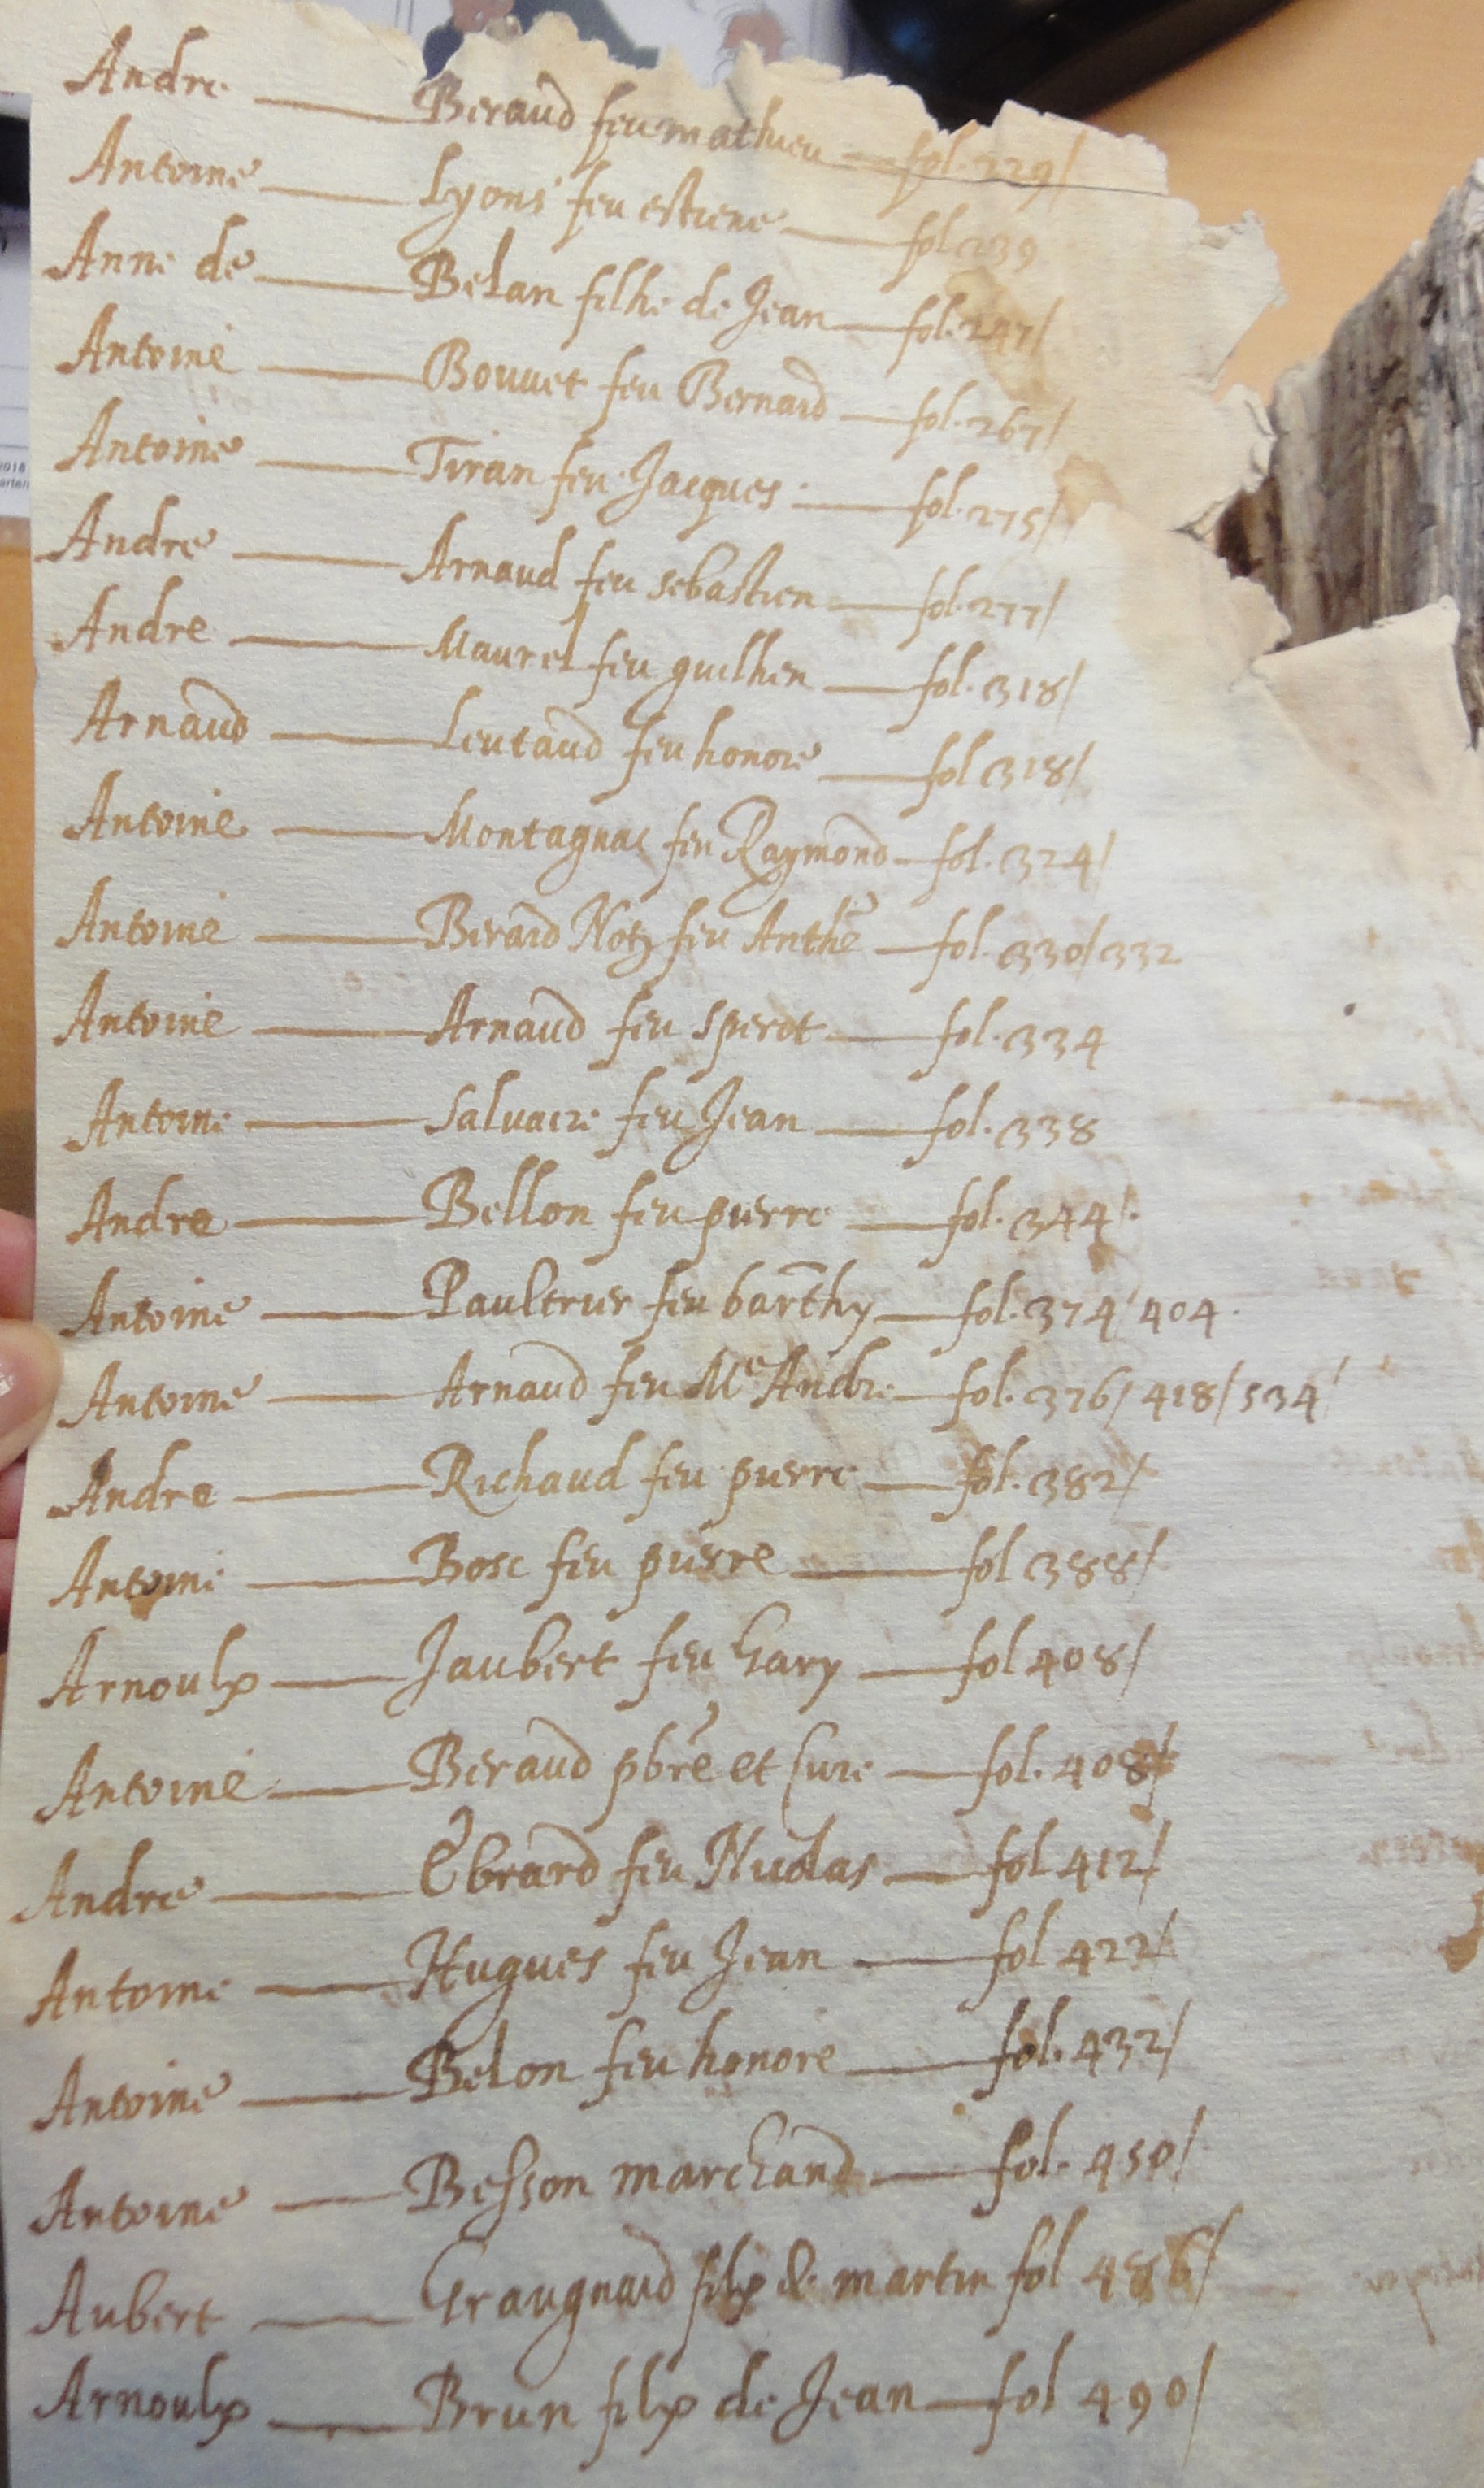 Andre — Beraud feu mathieu — fol. 229/
Antoine — Lyons feu estiene — fol. 239
Anne de — Belan filhe de Jean — fol. 247/
Antoine — Bouuet feu Bernard — fol. 267/
Antoine — Tiran feu Jacques — fol. 275/
Andre — Arnaud feu sebastien — fol. 277/
Andre — Maurel feu guilhen — fol. 318/
Arnaud — Leutaud feu honore — fol 318/
Antoine — Montagnac feu Raymond — fol. 324/
Antoine — Berard Notz feu Anthe — fol. 330/332
Antoine — Arnaud feu sperit — fol. 334
Antoine — Salvaire feu Jean — fol. 338
Andre — Bellon feu pierre — fol. 344/
Antoine — Paultrier feu barthy — fol. 374/404.
Antoine — Arnaud feu Me Andre — fol. 376/418/534/
Andre — Richaud feu pierre — fol. 382/
Antoine — Bosc feu pierre — fol 388/
Arnoulx — Jaubert feu hary — fol 408/
Antoine — Beraud pbre et Cure — fol. 408/
Andre — Ebrard feu Nicolas — fol 412/
Antoine — Hugues feu Jean — fol 422/
Antoine — Belon feu honore — fol. 432/
Antoine — Besson marchand — fol. 450/
Aubert — Graugnard filx de martin fol 486/
Arnoulx — Brun filx de Jean — fol 490/